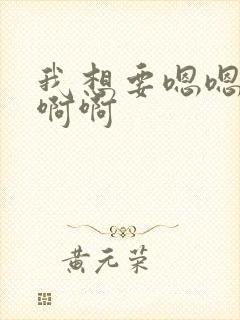 我想要嗯嗯
啊啊
黄元荣